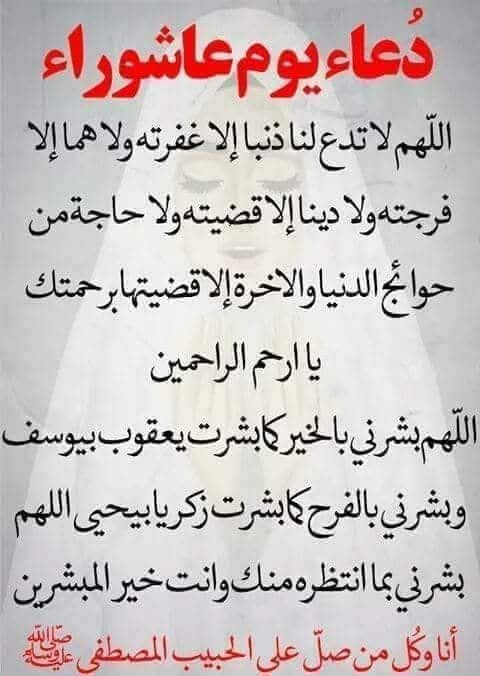 دُعاء يوم عاشوراء
اللّهم لا تدع لنا ذنبا إلا غفرته ولا هما إلا
فرجته ولا دينا إلا قضيته ولا حاجة من
حوائج الدنيا والاخرة إلا قضيتها برحمتك
يا ارحم الراحمين
اللّهم بشرني بالخير كما بشرت يعقوب بيوسف
وبشرني بالفرح كما بشرت زكريا بيحيى اللهم
بشرني بما انتظره منك وانت خير المبشرين
أنا وكُل من صلّ على الحبيب المصطفى ﷺ